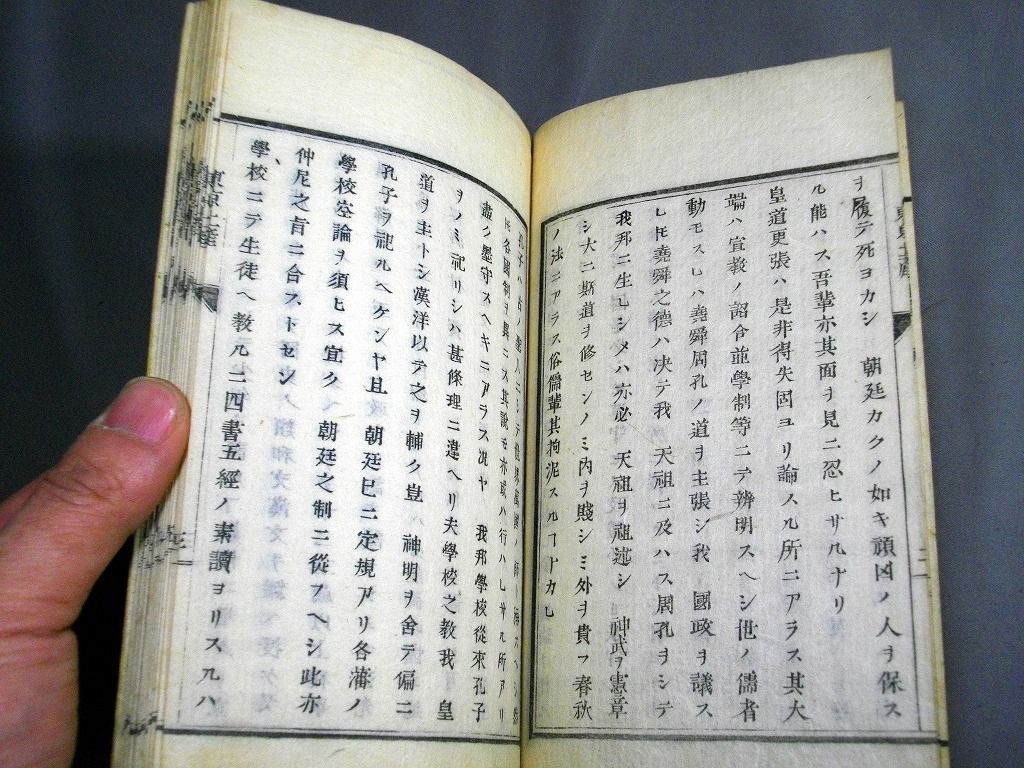 ヲ履テ死ヨカシ 朝廷カクノ如キ頑凶ノ人ヲ保ス
ル能ハス吾輩亦其面ヲ見ニ忍ヒサルナリ
皇道更張ハ是非得失固ヨリ論スル所ニアラス其大
端ハ宣教ノ詔令並學制等ニテ辨明スヘシ世ノ儒者
動モスレハ堯舜周孔ノ道ヲ主張シ我 國政ヲ議ス
レ𪜈堯舜之德ハ决テ我 天祖ニ及ハス周孔ヲシテ
我邦ニ生レシメハ亦必 天祖ヲ祖述シ 神武ヲ憲章
シ大ニ斯道ヲ修センノミ内ヲ賤シミ外ヲ貴フ春秋
ノ法ニアラス俗儒輩其拘泥スルヿナカレ
𪜈各國制ヲ異ニス其說モ亦或ハ行ハレサル所アリ
盡ク墨守スヘキニアラス况ヤ 我邦學校從來孔子
ヲノミ祀リシハ甚條理ニ違ヘリ夫學校之教我 皇
道ヲ主トシ漢洋以テ之ヲ輔ク豈 神明ヲ舍テ偏ニ
孔子ヲ祀ルヘケンヤ且 朝廷巳ニ定規アリ各藩ノ
學校空論ヲ須ヒス宜ク 朝廷之制ニ從フヘシ此亦
仲尼之旨ニ合ストセン
學校ニテ生徒ヘ教ルニ四書五經ノ素讀ヨリスルハ
三